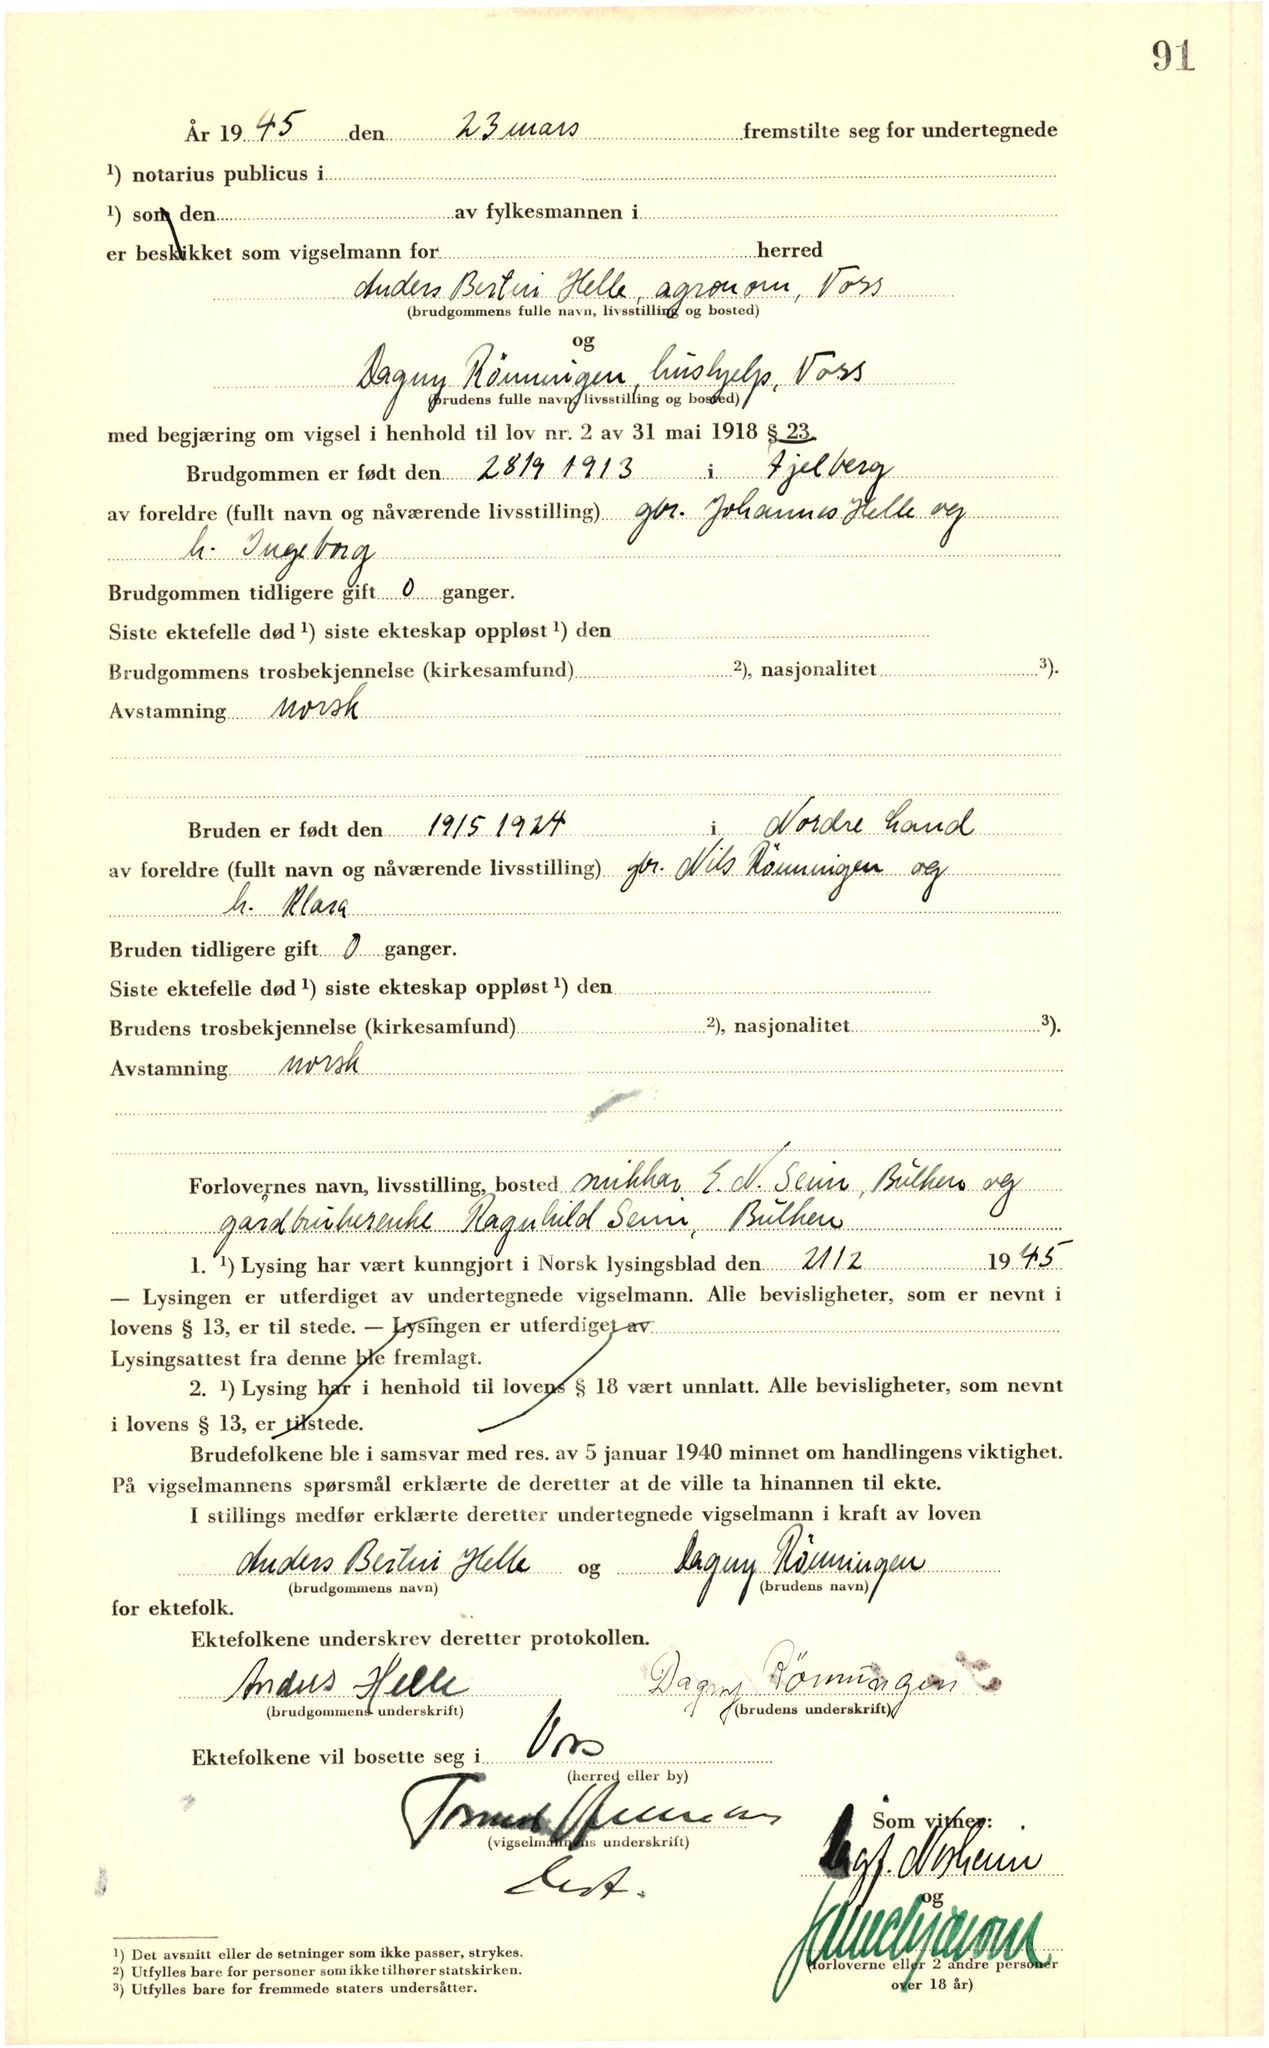 91
År 1945 den 23 mars fremstilte seg for undertegnede
1) notarius publicus i
1) som den av fylkesmannen i
er beskikket som vigselmann for herred
Anders Bertin Helle, agronom, Voss
(brudgommens fulle navn, livsstilling og bosted)
og
Dagny Rönningen, hushjelp, Voss
(brudens fulle navn, livsstilling og bosted)
med begjæring om vigsel i henhold til lov nr. 2 av 31 mai 1918 § 23.
Brudgommen er født den 28/9 1913 i Fjelberg
av foreldre (fullt navn og nåværende livsstilling) gbr. Johannes Helle og
h. Ingeborg
Brudgommen tidligere gift 0 ganger.
Siste ektefelle død 1) siste ekteskap oppløst 1) den
Brudgommens trosbekjennelse (kirkesamfund) 2), nasjonalitet 3).
Avstamning norsk
Bruden er født den 19/5 1924 i Nordre Land
av foreldre (fullt navn og nåværende livsstilling) gbr. Nils Rönningen og
h. Klara
Bruden tidligere gift 0 ganger.
Siste ektefelle død 1) siste ekteskap oppløst 1) den
Brudens trosbekjennelse (kirkesamfund) 2), nasjonalitet 3).
Avstamning norsk
Forlovernes navn, livsstilling, bosted E. N. Seim, Bulken og
Ragnhild Seim, Bulken
1. 1) Lysing har vært kunngjort i Norsk lysingsblad den 21/2 1945
— Lysingen er utferdiget av undertegnede vigselmann. Alle bevisligheter, som er nevnt i
lovens § 13, er til stede. — Lysingen er utferdiget av
Lysingsattest fra denne ble fremlagt.
2. 1) Lysing har i henhold til lovens § 18 vært unnlatt. Alle bevisligheter, som nevnt
i lovens § 13, er tilstede.
Brudefolkene ble i samsvar med res. av 5 januar 1940 minnet om handlingens viktighet.
På vigselmannens spørsmål erklærte de deretter at de ville ta hinannen til ekte.
I stillings medfør erklærte deretter undertegnede vigselmann i kraft av loven
Anders Bertin Helle og Dagny Rönningen
(brudgommens navn) (brudens navn)
for ektefolk.
Ektefolkene underskrev deretter protokollen.
Anders Helle Dagny Rönningen
(brudgommens underskrift) (brudens underskrift)
Ektefolkene vil bosette seg i Voss
(herred eller by)
Som vitner:
(vigselmannens underskrift)
og
1) Det avsnitt eller de setninger som ikke passer, strykes.
2) Utfylles bare for personer som ikke tilhører statskirken.
3) Utfylles bare for fremmede staters undersåtter.
(forloverne eller 2 andre personer
over 18 år)